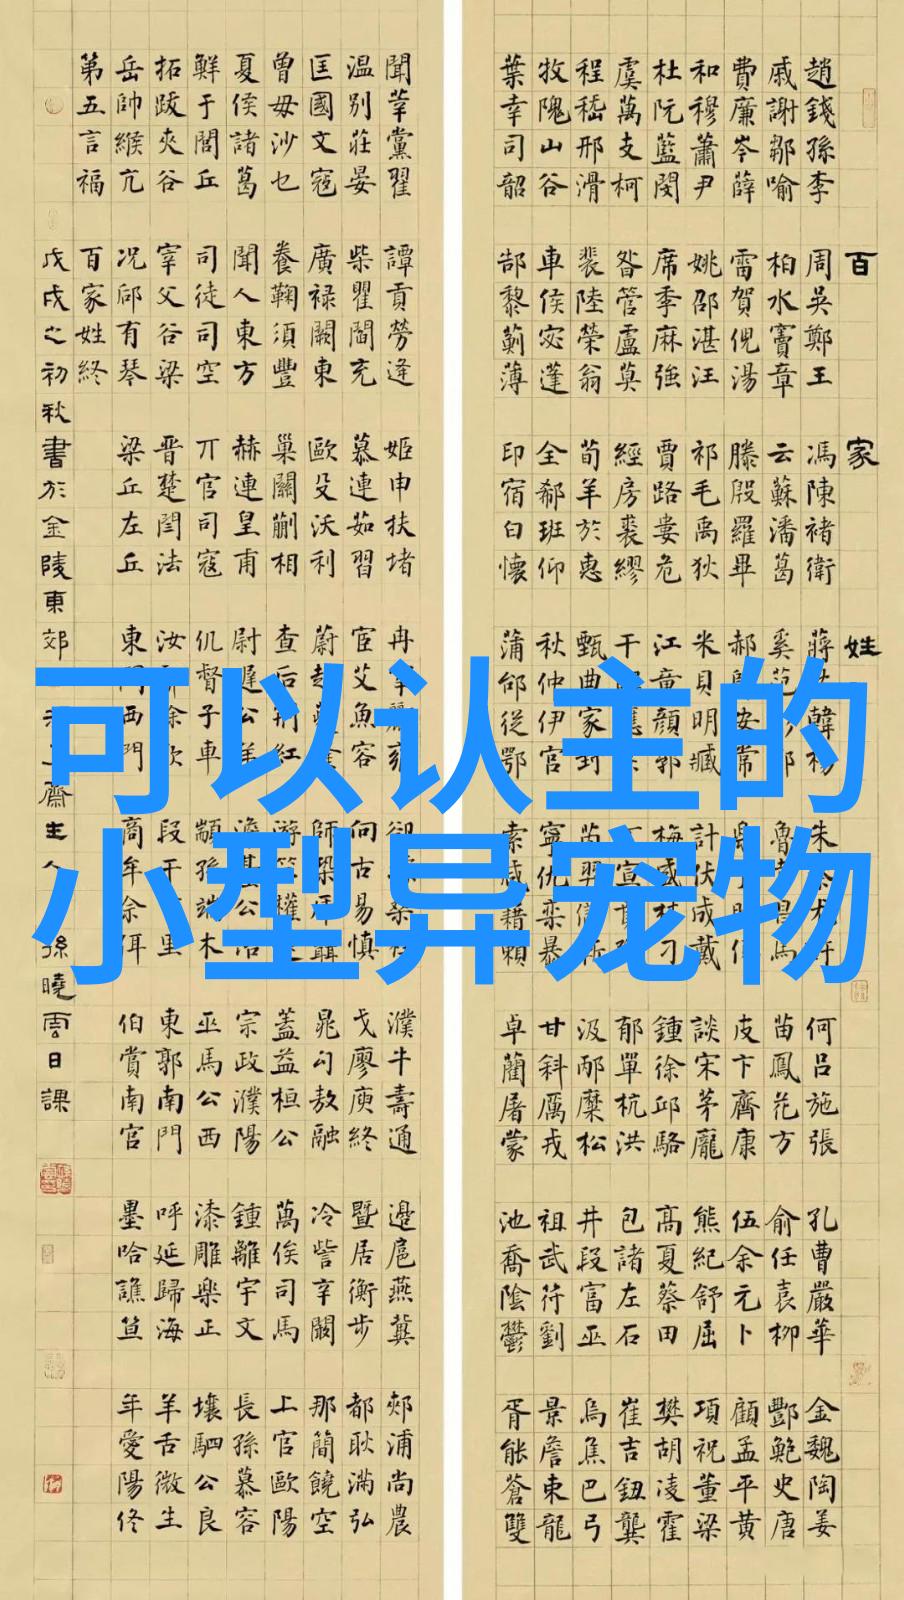 可以认主的
小型异宠物
百家姓
趙錢孫李 周吳鄭王 馮陳褚衛 蔣韓楊 朱許 何呂施張 孔曹嚴華 金魏陶姜
戚謝鄒喻 柏水竇章 云蘇潘葛 奚范郎 魯昌馬 苗鳳花方 俞任袁柳 酆鮑史唐
費廉岑薛 雷賀倪湯 滕殷羅畢 郝安常 皮卞齊康 伍余元卜 顧孟平黃
和穆蕭尹 姚邵湛汪 祁毛禹狄 米貝明臧 計伏成戴 談宋茅龐 熊紀舒屈 項祝董梁
杜阮藍閔 席季麻強 賈路婁危 江童顏郭 梅盛林刁 鍾徐邱駱 高夏蔡田 樊胡凌霍
虞萬支柯 昝管盧莫 經房裘繆 干應 宣 郁單杭洪 包諸左石 崔吉鈕龔
程嵇邢滑 裴陸榮翁 荀羊於惠 甄曲家封 芮羿 汲邴糜松 井段富巫 烏焦巴弓
牧隗山谷 車侯宓蓬 全郗班仰 秋仲伊宮 寧仇欒暴 甘斜厲戎 祖武符劉 景詹束龍
葉幸司韶 郜黎薊薄 印宿白懷 蒲邰從鄂 索咸籍賴 卓藺屠蒙 池喬陰鬱 胥能蒼雙
聞莘黨翟 譚貢勞逄 姬申扶堵 冉雍 卻桑桂 濮牛壽通 邊扈燕冀 郟浦尚農
温別莊晏 柴瞿閻充 慕連茹習 宦艾魚容 向古易慎 戈廖庾終 暨居衡步 都耿滿弘
匡國文寇 廣祿闕東 歐殳沃利 蔚越 師聶 晁勾敖融 冷訾辛闞 那簡饒空
曾毋沙乜 養鞠須豐 巢關蒯相 查后荊紅 游竺權 蓋益桓公 萬俟司馬 上官歐陽
夏侯諸葛 聞人東方 赫連皇甫 尉遲公羊 公冶 宗政濮陽 鍾離宇文 長孫慕容
鮮于閭丘 司徒司空 丌官司寇 仉督子車 顓孫端木 巫馬公西 漆雕樂正 壤駟公良
拓跋夾谷 宰父谷梁 晋楚閆法 汝涂欽 段干里 東郭南門 呼延歸海 羊舌微生
岳帥緱亢 況郈有琴 梁丘左丘 東門西門 商牟佘佴 伯賞南宮 墨哈譙笪 年愛陽佟
第五言福 百家姓終
戊戌之初秋書於金陵東郊 齋主人孫曉雲日課